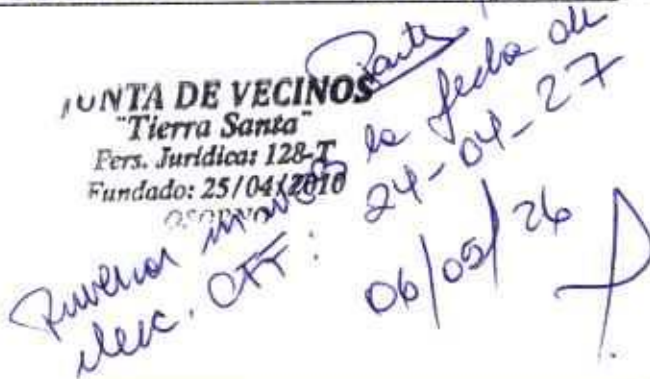 JUNTA DE VECINOS
"Tierra Santa"
Pers. Jurídica: 128-T
Fundado: 25/04/2010
OSORNO
la fecha de
elec. CTF: 24-04-27
06/05/26